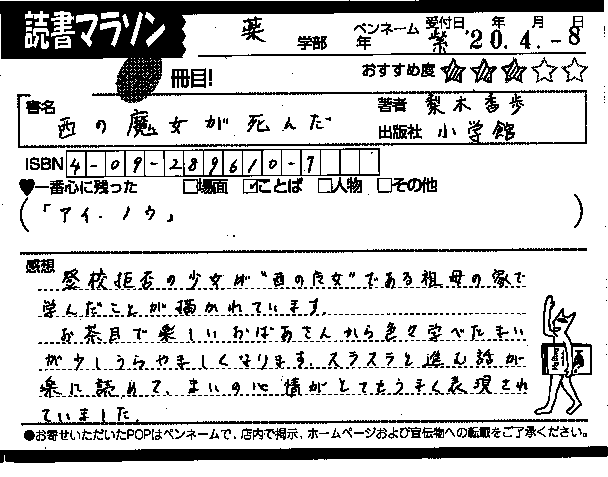 読書マラソン
薬 学部 年 ペンネーム 紫 受付日 '20年 4.月 -8日
冊目!
おすすめ度 ★★★☆☆
書名 西の魔女が死んだ
著者 梨木香歩
出版社 小学館
ISBN 4-09-289610-7
♥一番心に残った □場面 ☑ことば □人物 □その他
(「アイ・ノウ」)
感想 登校拒否の少女が“西の魔女”である祖母の家で
学んだことが描かれています。
お茶目で楽しいおばあさんから色々学べたまい
が少しうらやましくなります。スラスラと進む話が
楽に読めて、まいの心情がとてもうまく表現され
ていました。
●お寄せいただいたPOPはペンネームで、店内で掲示、ホームページおよび宣伝物への転載をご了承ください。